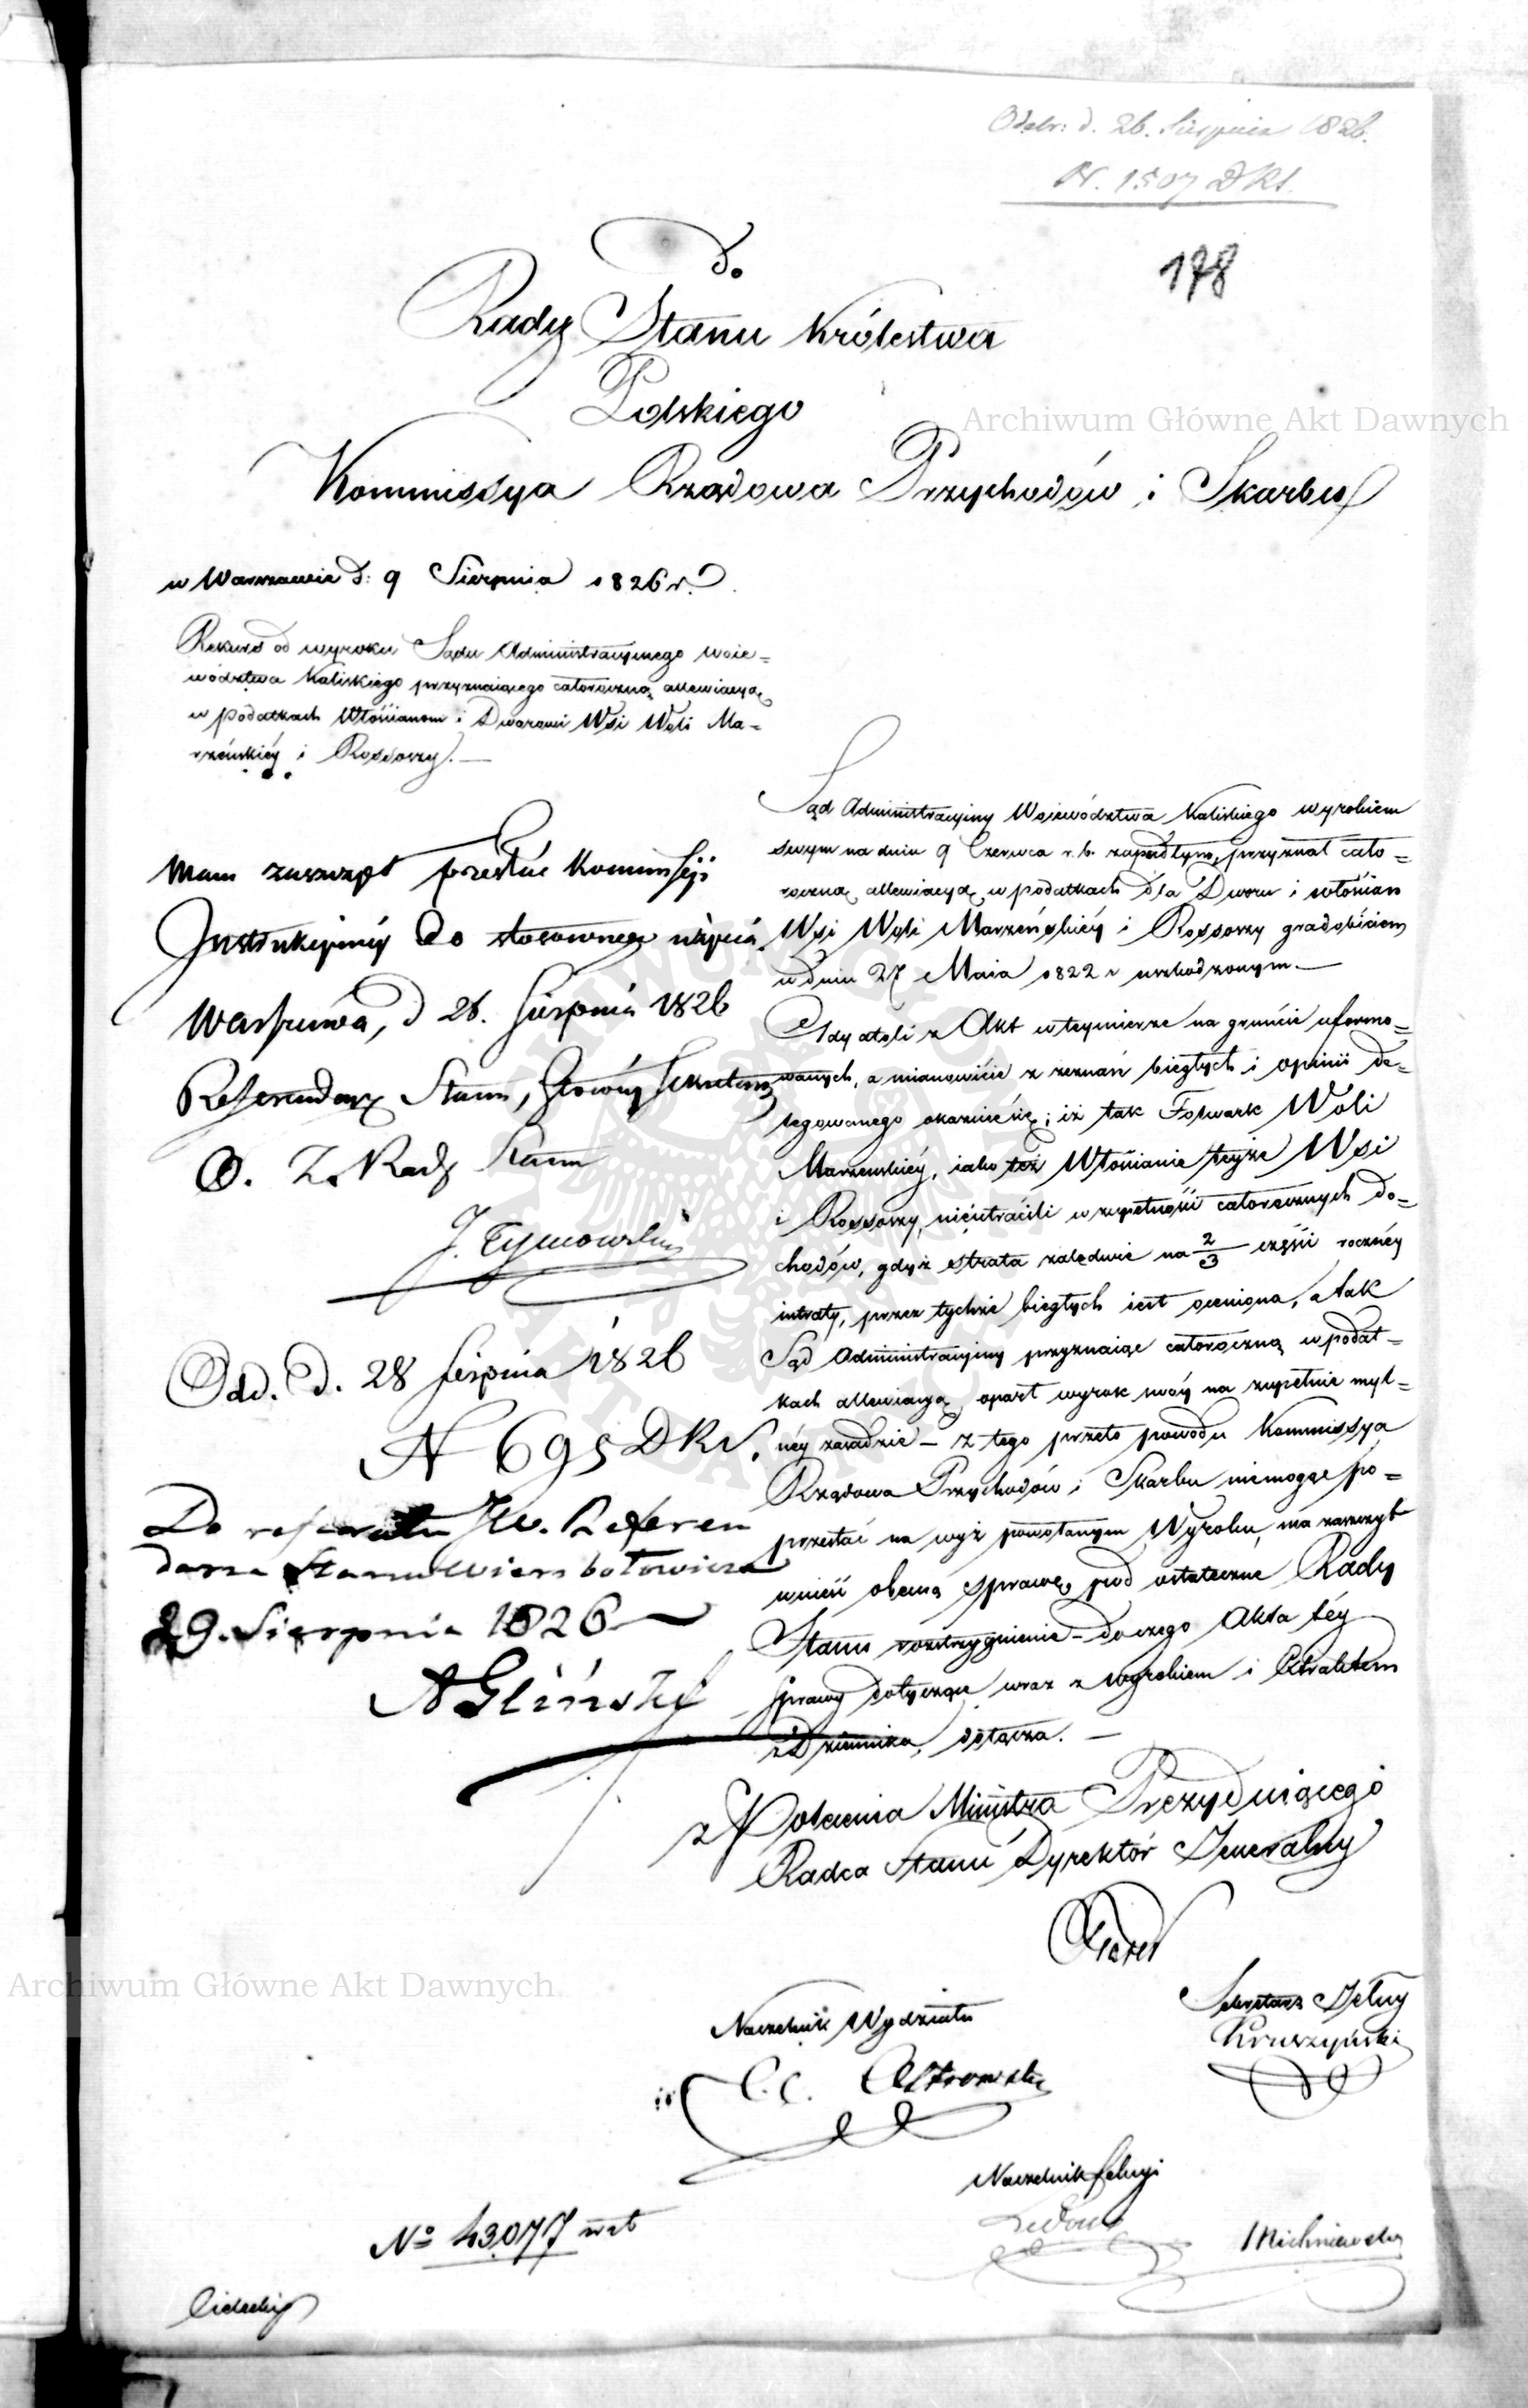 Odebr: d. 26. Sierpnia 1826.
N. 1507 DKS.
178
Do
Rady Stanu Królestwa
Polskiego
Archiwum Główne Akt Dawnych
Kommissya Rządowa Przychodów i Skarbu
w Warszawie d: 9 Sierpnia 1826 r.
Rekurs od wyroku Sądu Administracyinego Woie=
wództwa Kaliskiego przyznaiącego całoroczną allewiacyą
w podatkach Włościanom i Dworowi Wsi Woli Ma=
rzeńskiéy i Rossoszy.—
Mam zaszczyt przesłać Kommissyi
Instrukcyinéy do stosownego użycia.
Warszawa, d 26. Sierpnia 1826
Referendarz Stanu, Główny Sekretarz
O. Z. Rady Stanu
J. Tymowski
Odd. d. 28 Sierpnia 1826
N 695 DKI.
Do referatu JW. Referen
darza Stanu Wierzbołowicza
29. Sierpnia 1826
A Gliński
Sąd Administracyiny Województwa Kaliskiego wyrokiem
swym na dniu 9 Czerwca r. b. zapadłym, przyznał cało=
roczną allewiacyą w podatkach dla Dworu i włościan
Wsi Woli Marzeńskiéy i Rossoszy gradobiciem
w dniu 27 Maia 1822 r uszkodzonym.—
Gdy atoli z Akt w teymierze na gruncie uformo=
wanych, a mianowicie z zeznań biegłych i opinii de=
legowanego okazuie się; iż tak Folwark Woli
Marzenskiéy, iako też Włościanie teyże Wsi
i Rossoszy, nieutracili w zupełności całorocznych do=
chodów, gdyż strata zaledwie na 2/3 części rocznéy
intraty, przez tychże biegłych iest oceniona, a tak
Sąd Administracyiny przyznaiąc całoroczną w podat=
kach allewiacyą, oparł wyrok swóy na zupełnie myl=
néy zasadzie — z tego przeto powodu Kommissya
Rządowa Przychodów i Skarbu niemogąc po=
przestać na wyż powołanym Wyroku, ma zaszczyt
wnieść obecną sprawę, pod ostateczne Rady
Stanu rozstrzygnienie — do czego Akta téy
sprawy dotyczące wraz z wyrokiem i Extraktem
z Dziennika, dołącza.—
z Polecenia Ministra Prezyduiącego
Radca Stanu Dyrektór Jeneralny
Archiwum Główne Akt Dawnych
Sekretarz Jelny
Kruszyński
Naczelnik Wydziału
Ostrowski
Naczelnik Sekcyi
Michniewski
No 43077